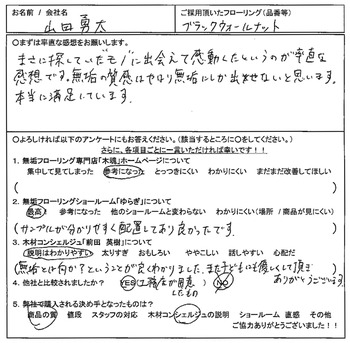 お名前 / 会社名
山田勇太
ご採用頂いたフローリング(品番等)
ブラックウォールナット
○まずは率直な感想をお願いします。
まさに探していたモノに出会えて感動したというのが率直な
感想です。無垢の質感はやはり無垢にしか出せないと思います。
本当に満足しています。
○よろしければ以下のアンケートにもお答えください。(該当するところに○をしてください。)
さらに、各項目ごとに一言いただければ幸いです!!
1. 無垢フローリング専門店「木魂」ホームページについて
集中して見てしまった 参考になった とっつきにくい わかりにくい まだまだ改善してほしい
( )
2. 無垢フローリングショールーム「ゆらぎ」について
最高! 参考になった 他のショールームと変わらない わかりにくい(場所 / 商品が見にくい)
(サンプルが分かりやすく配置してあり良かったです。)
3. 木材コンシェルジュ「前田 英樹」について
説明はわかりやすい 太りすぎ おもしろい ややこしい 話しやすい 心配だ
(無垢とは何か?ということが良くわかりました。また子どもにも優しくして頂き
ありがとうございます)
4. 他社と比較されましたか? YES (工務店が用意
したもの) NO
5. 弊社で購入される決め手となったものは?
商品の質 値段 スタッフの対応 木材コンシェルジュの説明 ショールーム 直感 その他
ご協力ありがとうございました!!